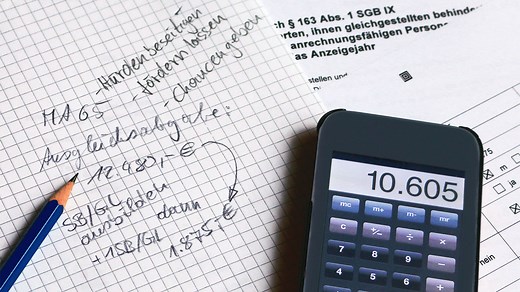 - Hürden beseitigen
- fördern lassen
- Chancen geben
MA 65
Ausgleichsabgabe:
12.480,- €
SB/GL
ausbilden
dann
+ 1SB/GL
1.875,- €
ch § 163 Abs. 1 SGB IX
rten, ihnen gleichgestellten behinder
anrechnungsfähigen Persone
as Anzeigejahr
stellen und
ja
10.605
mc m+ m- mr
c +/- ÷ ×
7 8 9 -
4 5 6 +
1 2 3